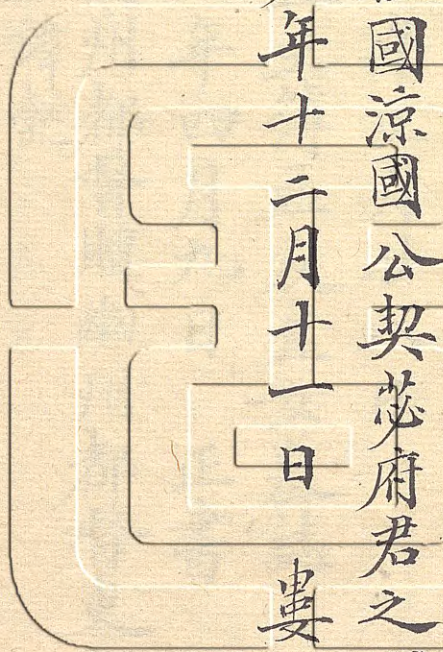 國涼國公契苾府君之
年十二月十一日 婁